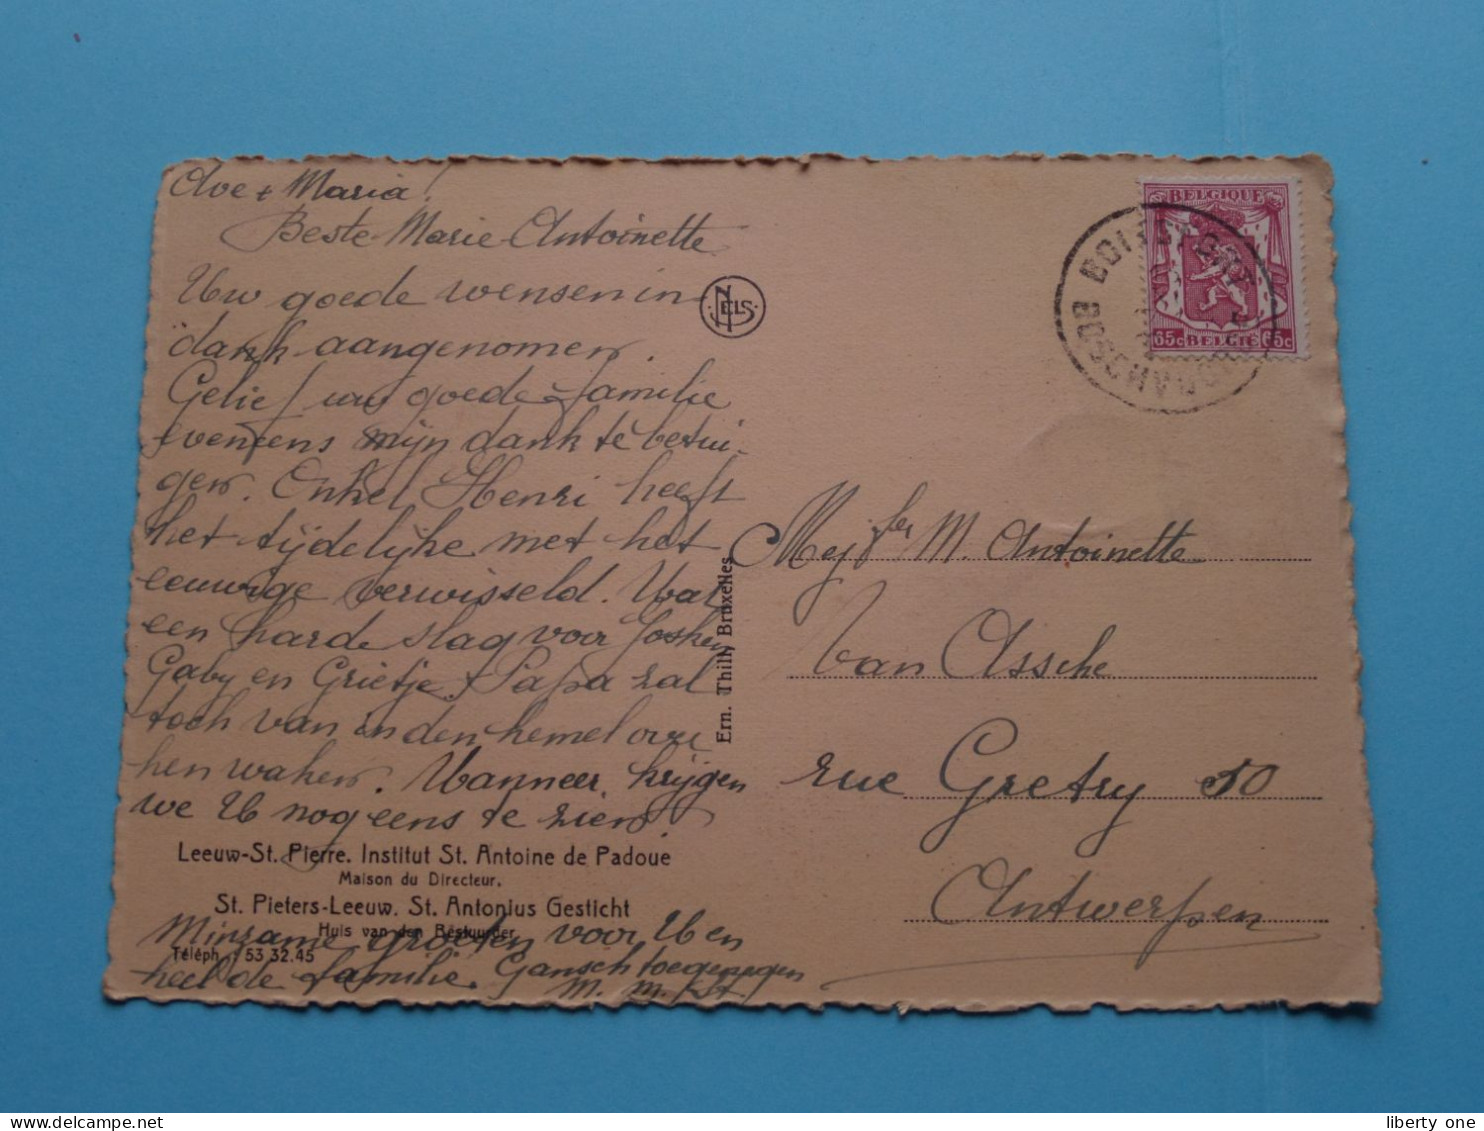 Ave + Maria!
Beste Marie-Antoinette
Uw goede wensen in
dank aangenomen.
Gelief uw goede familie
eveneens mijn dank te betui-
gen. Onkel Henri heeft
het tijdelijke met het
eeuwige verwisseld. Wat
een harde slag voor Josken
Gaby en Grietje. Papa zal
toch van in den hemel over
hen waken. Wanneer krijgen
we U nog eens te zien?
Leeuw-St. Pierre. Institut St. Antoine de Padoue
Maison du Directeur.
St. Pieters-Leeuw. St. Antonius Gesticht
Huis van den Bestuurder
Téléph. 53 32.45
Minzame groeten voor U en
heel de familie. Gansch toegenegen
NELS
Ern. Thill, Bruxelles
BELGIQUE
65c BELGIË 65c
BOITSFORT
BOSSCHVOORDE
Mej fer M. Antoinette
Van Assche
rue Gretry 50
Antwerpen
liberty one